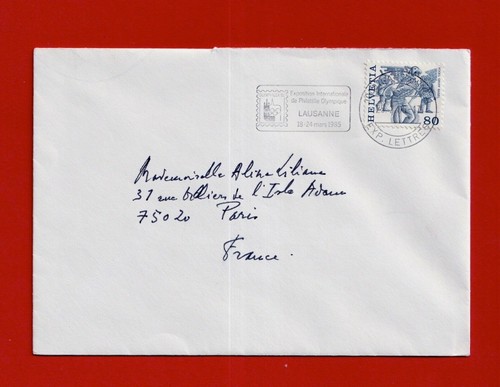 Exposition Internationale
de Philatélie Olympique
LAUSANNE
18-24 mars 1985
HELVETIA
80
EXP. LETTRES
Mademoiselle Aline Liliane
31 rue Villiers de l'Isle Adam
75020 Paris
France.